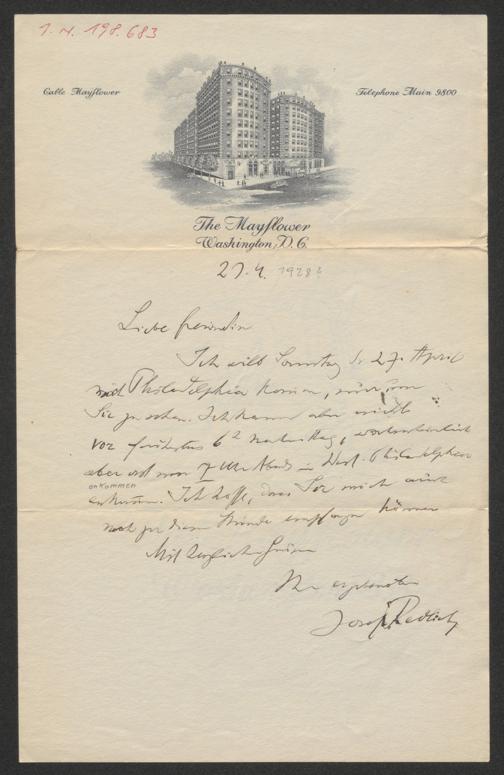 I. N. 198.683
Cable Mayflower
Telephone Main 9800
The Mayflower
Washington, D.C.
27. 4. 1928?
Liebe Freundin
Ich will Samstag d. 27. April
nach Philadelphia kommen, nur um
Sie zu sehen. Ich kann aber nicht
vor frühestens 6 Nachmittag, wahrscheinlich
aber erst um 7 Uhr Abends in West Philadelphia
ankommen
ankommen. Ich hoffe, dass Sie mich auch
noch zu dieser Stunde empfangen können
Mit herzlichen Grüssen
Ihr ergebenster
Josef Redlich